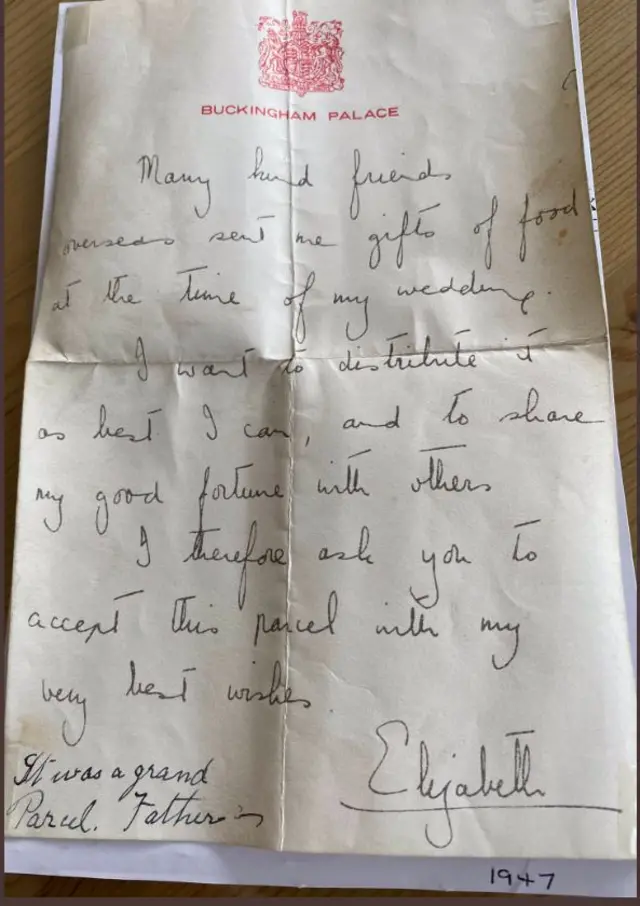 BUCKINGHAM PALACE
Many kind friends
overseas sent me gifts of food
at the time of my wedding.
I want to distribute it
as best I can, and to share
my good fortune with others
I therefore ask you to
accept this parcel with my
very best wishes
Elizabeth
It was a grand
Parcel. Father
1947